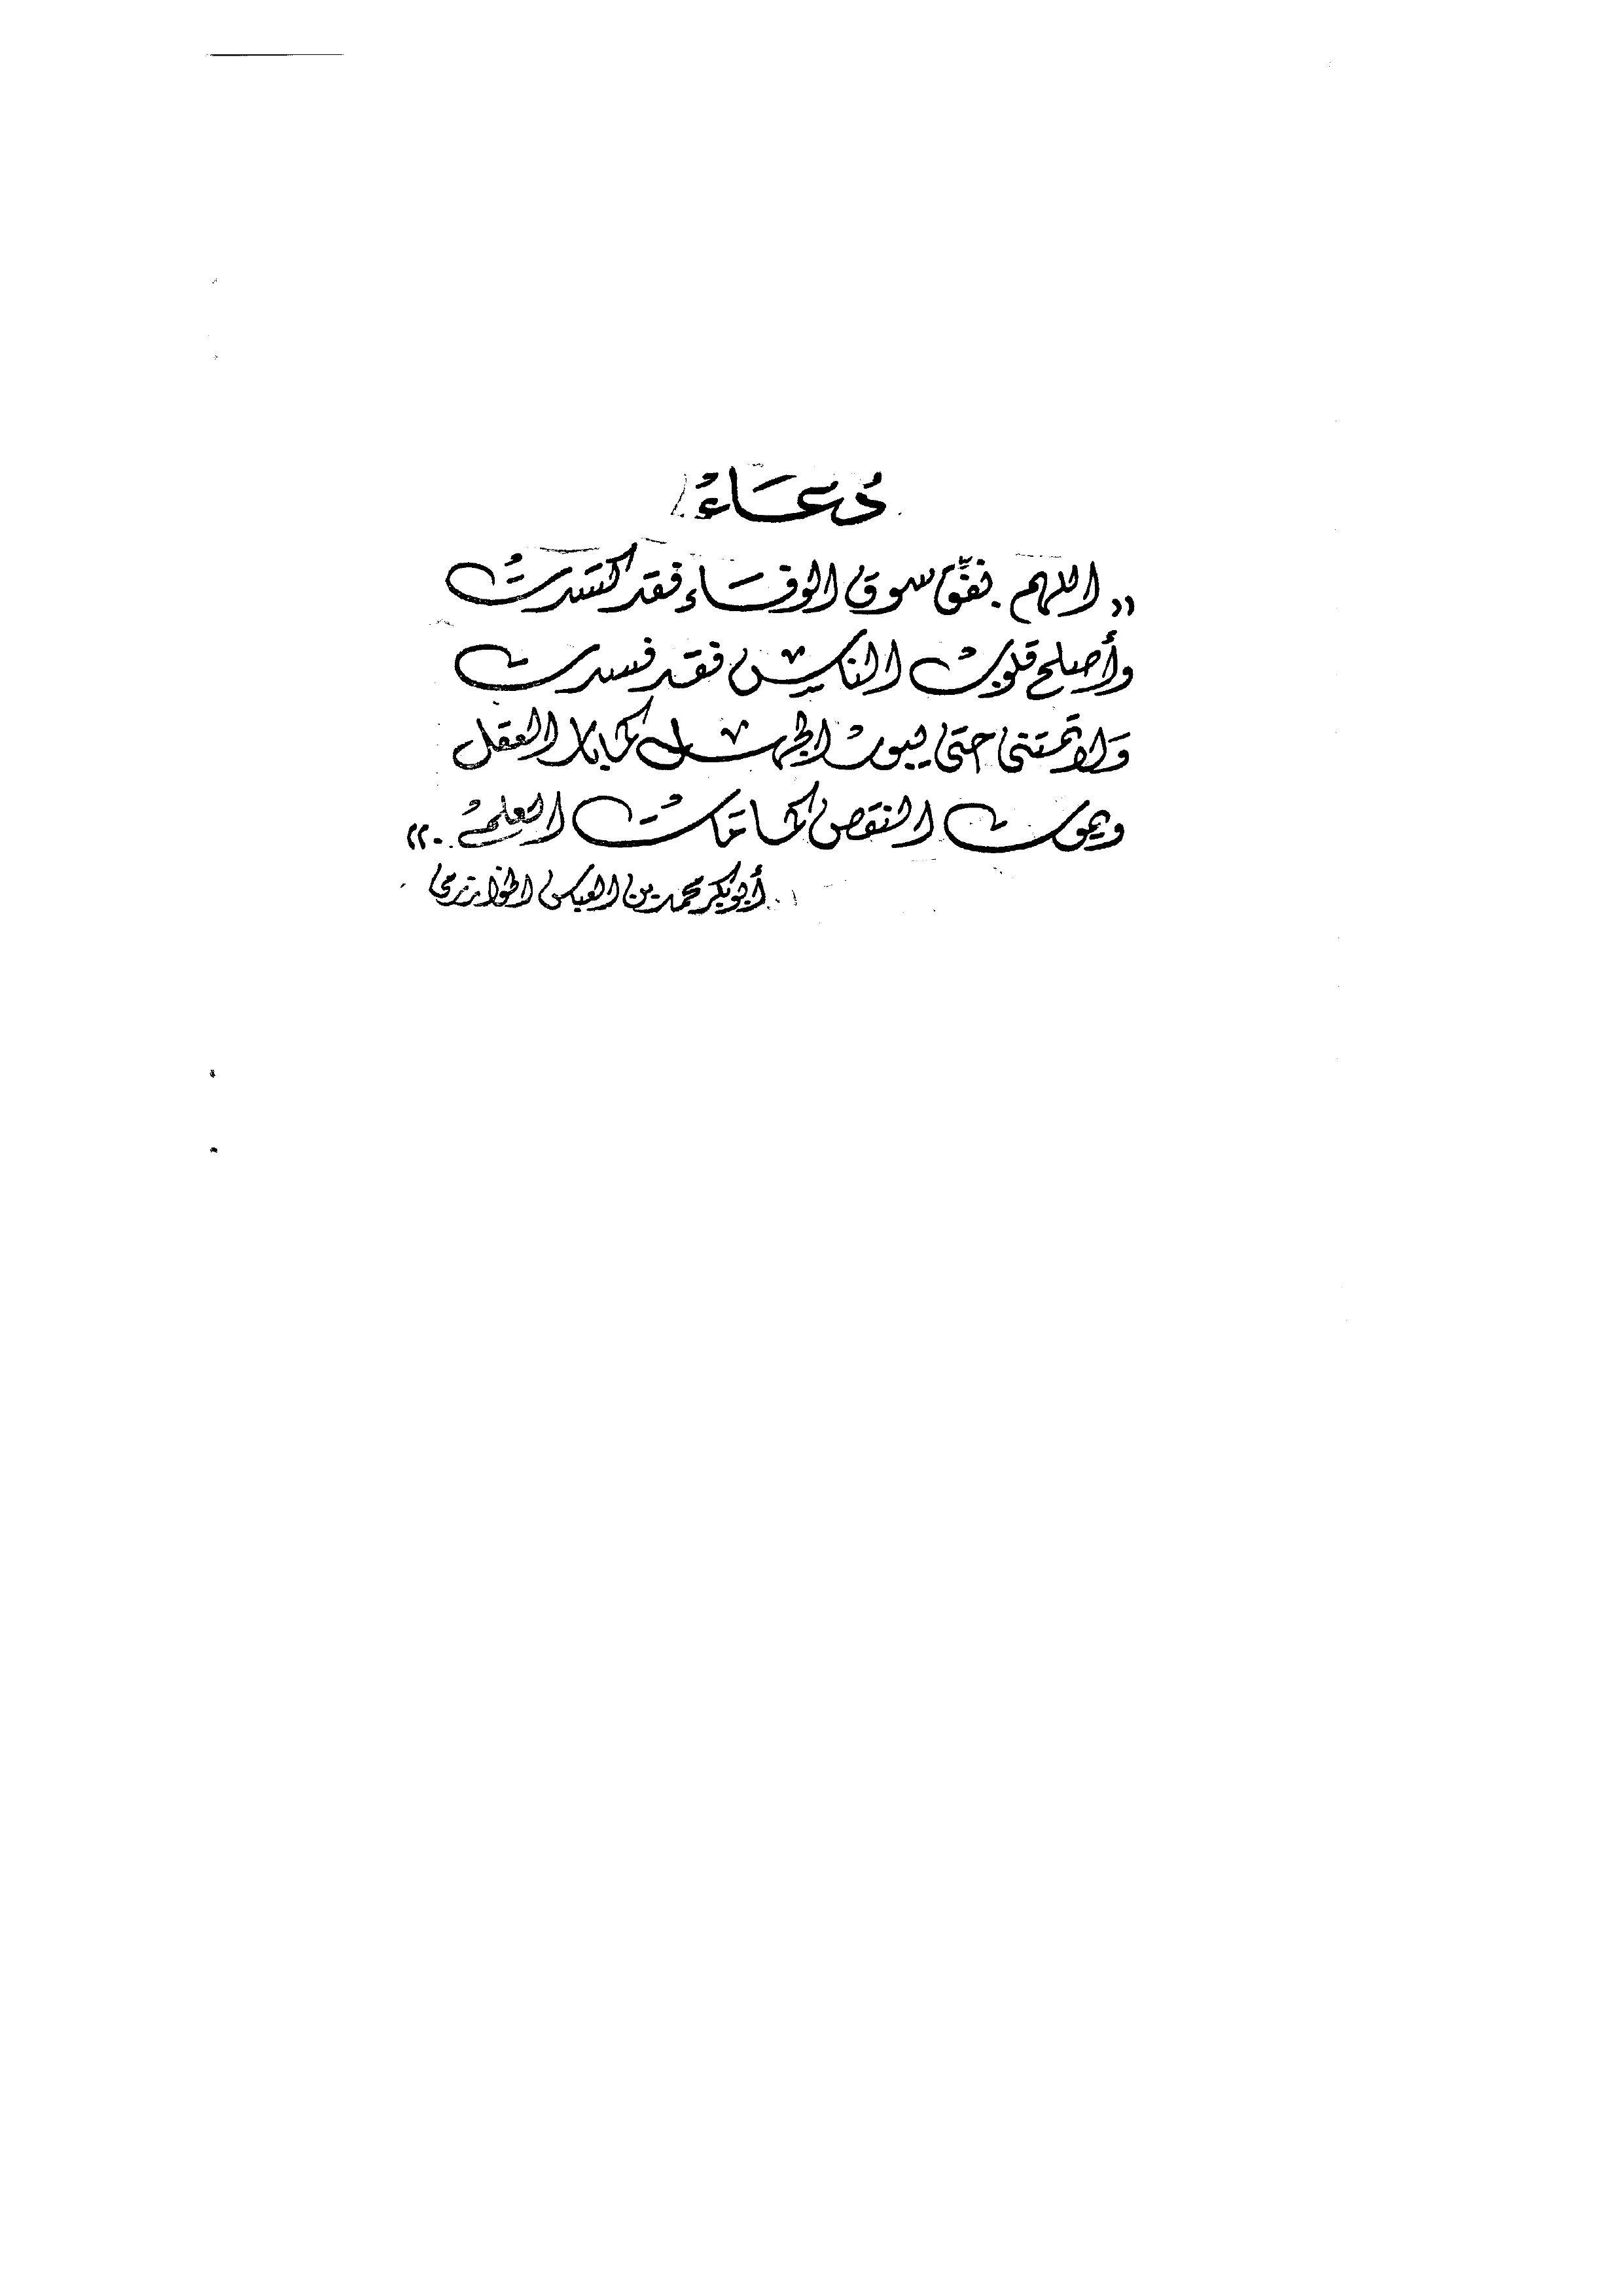 دعاء
« اللهم نفِّق سوق الوفاء فقد كسدت
وأصلح قلوب الناس فقد فسدت
ولا تمتني حتى يبور الجهل كما بار العقل
ويموت النقص كما مات العلم .»
أبو بكر محمد بن العباس الخوارزمي